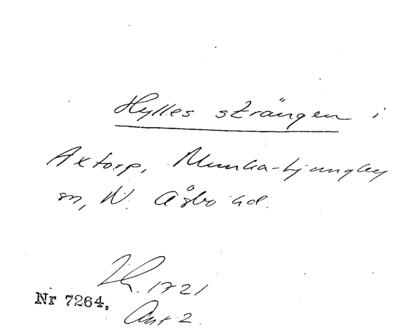 Hylles strängen i
Axtorp, Munka-Ljungby
sn, N. Åsbo hd.
1721
Nr 7264.